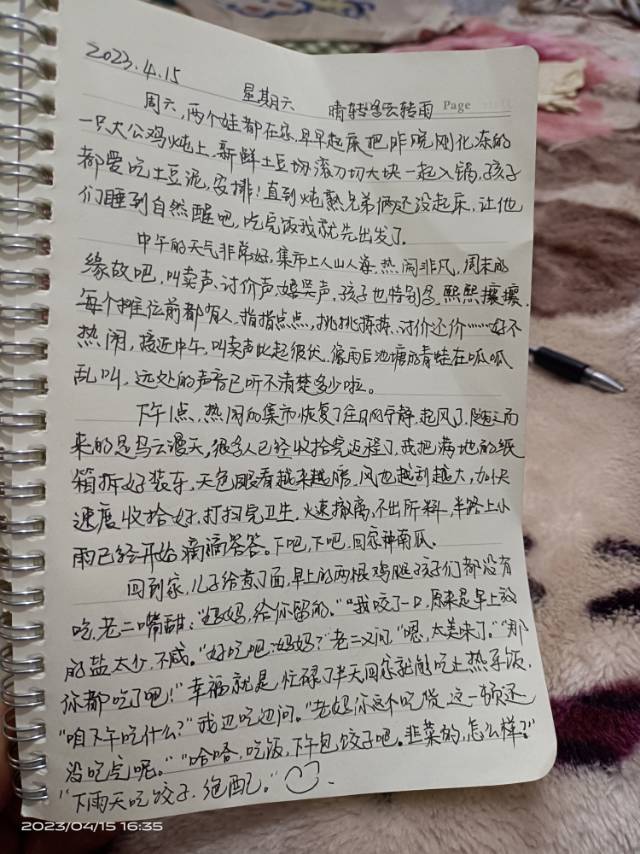 2023.4.15 星期六 晴转多云转雨 Page
周六,两个娃都在家,早早起床把昨晚刚化冻的
一只大公鸡炖上,新鲜土豆切滚刀切大块一起入锅,孩子
都爱吃土豆泥,安排!直到炖熟兄弟俩还没起床,让他
们睡到自然醒吧,吃完饭我就先出发了.
中午的天气非常好,集市上人山人海,热闹非凡,周末的
缘故吧,叫卖声、讨价声、嬉笑声,孩子也特别多,熙熙攘攘,
每个摊位前都有人,指指点点,挑挑拣拣,讨价还价……好不
热闹,接近中午,叫卖声此起彼伏,像雨后池塘的青蛙在呱呱
乱叫,远处的声音已听不清楚多少啦。
下午1点,热闹的集市恢复了往日的宁静,起风了,随之而
来的是乌云漫天,很多人已经收拾完返程了,我把满地的纸
箱拆好装车,天色眼看越来越暗,风也越刮越大,加快
速度收拾好,打扫完卫生,火速撤离,不出所料,半路上小
雨已经开始滴滴答答。下吧,下吧,回家种南瓜.
回到家,儿子给煮了面,早上的两根鸡腿孩子们都没有
吃,老二嘴甜:"妈妈,给你留的。""我咬了一口,原来是早上放
的盐太少,不咸。"好吃吧,妈妈?"老二又问"嗯,太美味了。""那
你都吃了吧!"幸福就是忙碌了半天回家就能吃上热乎饭.
"咱下午吃什么?"我边吃边问。"老妈你这个吃货,这一顿还
没吃完呢。""哈哈,吃饭,下午包饺子吧。韭菜的,怎么样?"
"下雨天吃饺子,绝配。"
2023/04/15 16:35